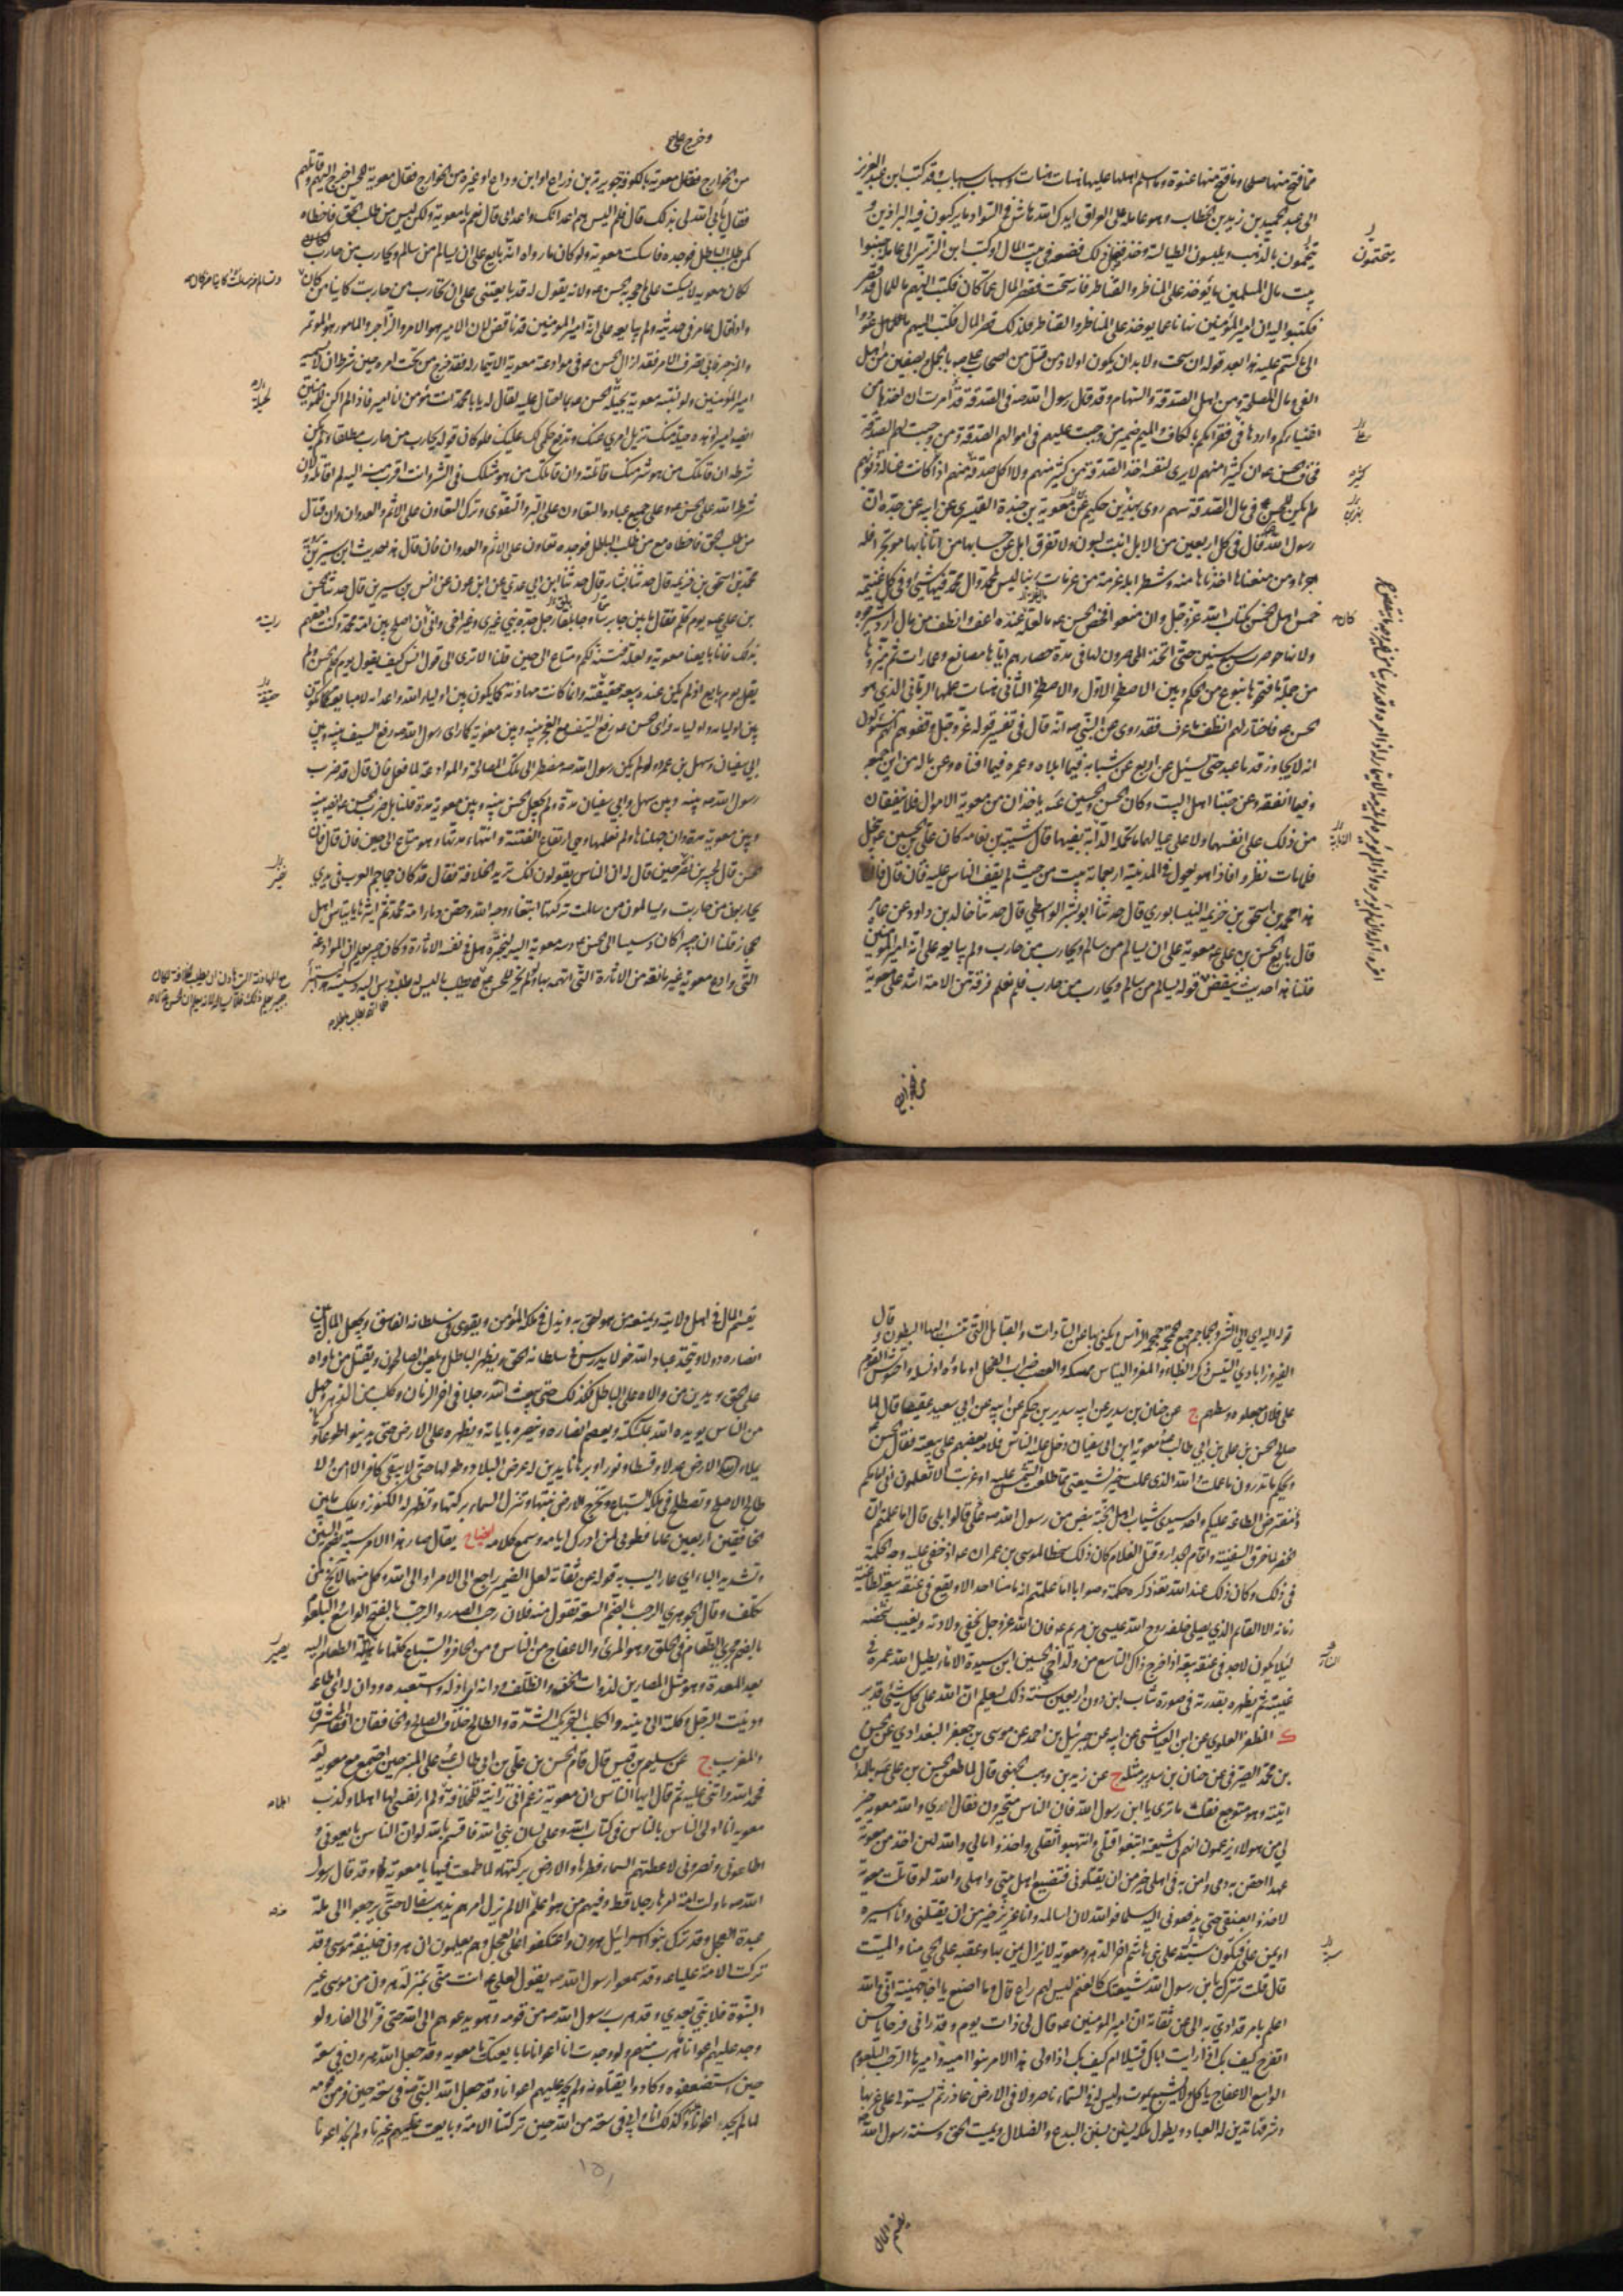 مما فتح منها صلحا وما فتح منها عنوة وما اسلم اهلها عليها هنات هنات وسباب سباب وقد كتب ابن عبد العزيز
الى عبد الحميد بن زيد بن الخطاب وهو عامله على العراق ايدك الله هاش في السواد ما يركبون فيه البراذين و
يتختمون بالذهب ويلبسون الطيالسة وخذ فضل ذلك فضعه في بيت المال وكتب ابن الزبير الى عامله جنبوا
بيت مال المسلمين ما يؤخذ على المناظر والقناطر فانه سحت فقصر المال عما كان فكتب اليهم ما للمال قد قصر
فكتبوا اليه ان امير المؤمنين نهانا عما يوخذ على المناظر والقناطر فلذلك قصر المال فكتب اليهم عودوا
الى ما كنتم عليه هذا بعد قوله انه سحت ولا بد ان يكون اولاد من قتل من اصحاب علي ص بالجمل وبصفين من اهل
الفي ومال المصلحة ومن اهل الصدقة والسهام وقد قال رسول الله ص في الصدقة قد أمرت ان اخذها من
اغنيائكم واردها في فقرائكم بالكاف والميم ضمير من وجبت عليهم في اموالهم الصدقة ومن وجبت لهم الصدقة
فخاف الحسن ع ان كثيرا منهم لا يرى لنفسه اخذ الصدقة من كثير منهم ولا اكل صدقة منهم اذا كانت غسالة ذنوبهم
ولم يكن للحسن ع في مال الصدقة سهم روى بهز بن حكيم عن معوية بن حيدة القشيري عن ابيه عن جده ان
رسول الله ص قال في كل اربعين من الابل ابنة لبون ولا تفرق ابل عن حسابها من اتانا بها موتجرا فله
اجرها ومن منعناها اخذناها منه وشطر ابله عزمة من عزمات ربنا ليس لمحمد وال محمد فيها شئ وفي كل غنيمة
خمس اهل الخمس بكتاب الله عز وجل وان منعوا فخص الحسن ع ما لعله عنده اعف وانظف من مال اردشير خره
ولانها حوصرت سبع سنين حتى اتخذ المحاصرون لها في مدة حصارهم اياها مصانع وعمارات ثم ميزوها
من جملة ما فتحوها بنوع من الحكم وبين الاصطخر الاول والاصطخر الثاني هنات علمها الرباني الذي هو
الحسن ع فاختار لهم انظف ما عرف فقد روى عن النبي ص انه قال في تفسير قوله عز وجل وقفوهم انهم مسئولون
انه لا يجاوز قدما عبد حتى يسئل عن اربع عن شبابه فيما ابلاه وعمره فيما افناه وعن ماله من اين جمعه
وفيما انفقه وعن حبنا اهل البيت وكان الحسن والحسين ع يأخذان من معوية الاموال فلا ينفقان
من ذلك على انفسهما ولا على عيالهما ما تحمله الذبابة بفيها قال شيبة بن نعامة كان علي بن الحسين ع يبخل
فلما مات نظروا فاذا هو يعول في المدينة اربعمائة بيت من حيث لم يقف الناس عليه فان قال قائل
هذا محمد بن اسحق بن خزيمة النيسابوري قال حدثنا ابو بشر الواسطي قال حدثنا خالد بن داود عن عامر
قال بايع الحسن بن علي ع معوية على ان يسالم من سالم ويحارب من حارب ولم يبايعه على انه امير المؤمنين
قلنا هذا حديث ينقض قوله يسالم من سالم ويحارب من حارب فلم نعلم فرقة من الامة اشد على معوية
يتختمون
كثير
بهز بن
كان
الذبابة
من الخوارج
وخرج على
من الخوارج فقال معوية بالكوفة جويرية بن ذراع او ابن وداع او غيره من الخوارج فقال معوية للحسن اخرج اليهم وقاتلهم
فقال يأبى الله لي بذلك قال فلم اليس هم اعدائك واعدائي قال نعم يا معوية ولكن ليس من طلب الحق فاخطأه
كمن طلب الباطل فوجده فاسكت معوية ولو كان ما رواه انه بايع على ان يسالم من سالم ويحارب من حارب
لكان معوية لا يسكت على ما حجه به الحسن ع ولانه يقول له قد بايعتني على ان تحارب من حاربت كائنا من كان
واذا قال عامر في حديثه ولم يبايعه على انه امير المؤمنين قد ناقض لان الامير هو الامر والزاجر والمامور هو المؤتمر
والمنزجر فابى تصرف الامر فقد ازال الحسن ع في موادعته معوية الايتمار له فقد خرج من تحت امره حين شرط ان لا يسميه
امير المؤمنين ولو انتبه معوية بحيلة الحسن ع بما احتال عليه لقال له يا با محمد انت مؤمن وانا امير فاذا لم اكن للمؤمنين
اميرا وهذه حيلة منك تزيل امري عنك وتدفع حكمي لك وعليك فلو كان قوله يحارب من حارب مطلقا ولم يكن
شرطه ان قاتلك من هو شر منك قاتلته وان قاتلك من هو مثلك في الشر وانت اقرب منه اليه لم اقاتله ولان
شرط الله على الحسن ع وعلى جميع عباده التعاون على البر والتقوى وترك التعاون على الاثم والعدوان وان قتال
من طلب الحق فاخطأه مع من طلب الباطل فوجده تعاون على الاثم والعدوان فان قال هذا حديث ابن سيرين
محمد بن اسحق بن خزيمة قال حدثنا بشار قال حدثنا ابن ابي عدي عن ابن عون عن انس بن سيرين قال حدثنا الحسن
بن علي ع يوم كلم فقال ما بين جابرسا وجابلقا رجل جده نبي غيري وغير اخي واني رأيت ان اصلح بين امة محمد وكنت احقهم
بذلك فانا بايعنا معوية ولعله فتنة لكم ومتاع الى حين قلنا الا ترى الى قول انس كيف يقول يوم كلم الحسن ولم
يقل يوم بايع اذ لم يكن عنده بيعة حقيقة وانما كانت مهادنة كما يكون بين اولياء الله واعدائه لا مبايعة تكون
بين اوليائه واوليائه فرأى الحسن ع رفع السيف مع العجز بينه وبين معوية كما رأى رسول الله ص رفع السيف بينه وبين
ابي سفيان وسهيل بن عمرو ولو لم يكن رسول الله ص مضطرا الى تلك المصالحة والموادعة لما فعل فان قال قد ضرب
رسول الله ص بينه وبين سهيل وابي سفيان مدة ولم يجعل الحسن بينه وبين معوية مدة قلنا بل ضرب الحسن ع ايضا بينه
وبين معوية مدة وان جهلناها ولم نعلمها وهي ارتفاع الفتنة وانتهاء مدتها وهو متاع الى حين فان قال فان
الحسن قال لجبير بن نفير حين قال له ان الناس يقولون انك تريد الخلافة فقال قد كان جماجم العرب في يدي
يحاربون من حاربت ويسالمون من سالمت تركتها ابتغاء وجه الله وحقن دماء امة محمد ثم اثيرها يا تياس اهل
الحجاز قلنا ان جبيرا كان دسيسا الى الحسن ع دسه معوية اليه ليختبره هل في نفسه الاثارة وكان جبير يعلم ان الموادعة
التي وادع معوية غير مانعة من الاثارة التي اتهمه بها ولو لم يجز للحسن ع
حقيقة
قوله اليه اي الى الشر والجماجم جمع الجمجمة جمجمة الراس ويكنى بها عن السادات والقبائل التي تنسب اليها البطون وقال
الفيروزابادي التيس ذكر الظباء والمعز والتياس ممسكه والعصب ضراب الفحل او ماؤه او نسله واحتوش القوم
على فلان جعلوه وسطهم ج عن حنان بن سدير عن ابيه سدير بن حكيم عن ابيه عن ابي سعيد عقيصا قال لما
صالح الحسن بن علي بن ابي طالب ع معوية ابن ابي سفيان دخل عليه الناس فلامه بعضهم على بيعته فقال الحسن ع
ويحكم ما تدرون ما عملت والله الذي عملت خير لشيعتي مما طلعت عليه الشمس او غربت الا تعلمون اني امامكم
ومفترض الطاعة عليكم واحد سيدي شباب اهل الجنة بنص من رسول الله ص علي قالوا بلى قال اما علمتم ان
الخضر لما خرق السفينة واقام الجدار وقتل الغلام كان ذلك سخطا لموسى بن عمران ع اذ خفي عليه وجه الحكمة
في ذلك وكان ذلك عند الله تعالى ذكره حكمة وصوابا اما علمتم انه ما منا احد الا ويقع في عنقه بيعة لطاغية
زمانه الا القائم الذي يصلي خلفه روح الله عيسى بن مريم ع فان الله عز وجل يخفي ولادته ويغيب شخصه
لئلا يكون لاحد في عنقه بيعة اذا خرج ذاك التاسع من ولد اخي الحسين ابن سيدة الاماء يطيل الله عمره في
غيبته ثم يظهره بقدرته في صورة شاب ابن دون اربعين سنة ذلك ليعلم ان الله على كل شئ قدير
ك المظفر العلوي عن ابن العياشي عن ابيه عن جبرئيل بن احمد عن موسى بن جعفر البغدادي عن الحسن
بن محمد الصيرفي عن حنان بن سدير مثله ج عن زيد بن وهب الجهني قال لما طعن الحسن بن علي ع بالمداين
اتيته وهو متوجع فقلت ما ترى يا ابن رسول الله فان الناس متحيرون فقال ارى والله معوية خير
لي من هولاء يزعمون انهم لي شيعة ابتغوا قتلي وانتهبوا ثقلي واخذوا مالي والله لان اخذ من معوية
عهدا احقن به دمي وامن به في اهلي خير من ان يقتلوني فتضيع اهل بيتي واهلي والله لو قاتلت معوية
لاخذوا بعنقي حتى يدفعوني اليه سلما فوالله لان اسالمه وانا عزيز خير من ان يقتلني وانا اسيره
او يمن علي فتكون سبة على بني هاشم اخر الدهر ومعوية لا يزال يمن بها وعقبه على الحي منا والميت
قال قلت تترك يا ابن رسول الله شيعتك كالغنم ليس لهم راع قال وما اصنع يا اخا جهينة اني والله
اعلم بامر قد ادي به الي عن ثقاته ان امير المؤمنين ع قال لي ذات يوم وقد رآني فرحا يا حسن
اتفرح كيف بك اذا رايت اباك قتيلا ام كيف بك اذا ولي هذا الامر بنو امية واميرها الرحب البلعوم
الواسع الاعفاج ياكل ولا يشبع يموت وليس له في السماء ناصر ولا في الارض عاذر ثم يستولي على غربها
وشرقها تدين له العباد ويطول ملكه يستن بسنن البدع والضلال ويميت الحق وسنة رسول الله ص
يقسم المال
يقسم المال في اهل ولايته ويمنعه من هو احق به ويذل في ملكه المؤمن ويقوى في سلطانه الفاسق ويجعل المال بين
انصاره دولا ويتخذ عباد الله خولا يدرس في سلطانه الحق ويظهر الباطل ويلعن الصالحون ويقتل من ناواه
على الحق ويدين من والاه على الباطل فكذلك حتى يبعث الله رجلا في اخر الزمان وكلب من الدهر وجهل
من الناس يؤيده الله بملائكته ويعصم انصاره وينصره باياته ويظهره على الارض حتى يدينوا طوعا وكرها
يملاء الارض عدلا وقسطا ونورا وبرهانا يدين له عرض البلاد وطولها حتى لا يبقى كافر الا امن ولا
طالح الا صلح وتصطلح في ملكه السباع وتخرج الارض نبتها وتنزل السماء بركتها وتظهر له الكنوز ويملك ما بين
الخافقين اربعين عاما فطوبى لمن ادرك ايامه وسمع كلامه ايضاح يقال صار هذا الامر سبة بضم السين
وتشديد الباء اي عارا يسب به قوله عن ثقاته لعل الضمير راجع الى الامر او الى الله وكل منهما لا يخ من
تكلف وقال الجوهري الرحب بالضم السعة تقول منه فلان رحب الصدر والرحب بالفتح الواسع البلعوم
بالضم مجرى الطعام في الحلق وهو المرئ والاعفاج من الناس ومن الحافر والسباع كلها ما يصير الطعام اليه
بعد المعدة وهو مثل المصارين لذوات الخف والظلف ودانه اي اذله واستعبده ودان له اي اطاعه
ودينت الرجل وكلته الى دينه والكلب بالتحريك الشدة والطالح خلاف الصالح والخافقان افقا المشرق
والمغرب ج عن سليم بن قيس قال قام الحسن بن علي بن ابي طالب ع على المنبر حين اجتمع مع معوية
فحمد الله واثنى عليه ثم قال ايها الناس ان معوية زعم اني رايته للخلافة اهلا ولم ار نفسي لها اهلا وكذب
معوية انا اولى الناس بالناس في كتاب الله وعلى لسان نبي الله فاقسم بالله لو ان الناس بايعوني و
اطاعوني ونصروني لاعطتهم السماء قطرها والارض بركتها ولما طمعت فيها يا معوية وقد قال رسول
الله ص ما ولت امة امرها رجلا قط وفيهم من هو اعلم منه الا لم يزل امرهم يذهب سفالا حتى يرجعوا الى ملة
عبدة العجل وقد ترك بنو اسرائيل هرون واعتكفوا على العجل وهم يعلمون ان هرون خليفة موسى وقد
تركت الامة عليا ع وقد سمعوا رسول الله ص يقول لعلي ع انت مني بمنزلة هرون من موسى غير
النبوة فلا نبي بعدي وقد هرب رسول الله ص من قومه وهو يدعوهم الى الله حتى فر الى الغار ولو
وجد عليهم اعوانا ما هرب منهم ولو وجدت انا اعوانا ما بايعتك يا معوية وقد جعل الله هرون في سعة
حين استضعفوه وكادوا يقتلونه ولم يجد عليهم اعوانا وقد جعل الله النبي ص في سعة حين فر من قومه
لما لم يجد اعوانا وكذلك انا وابي في سعة من الله حين تركتنا الامة وبايعت غيرنا ولم نجد اعوانا
يصير
۱۵۱